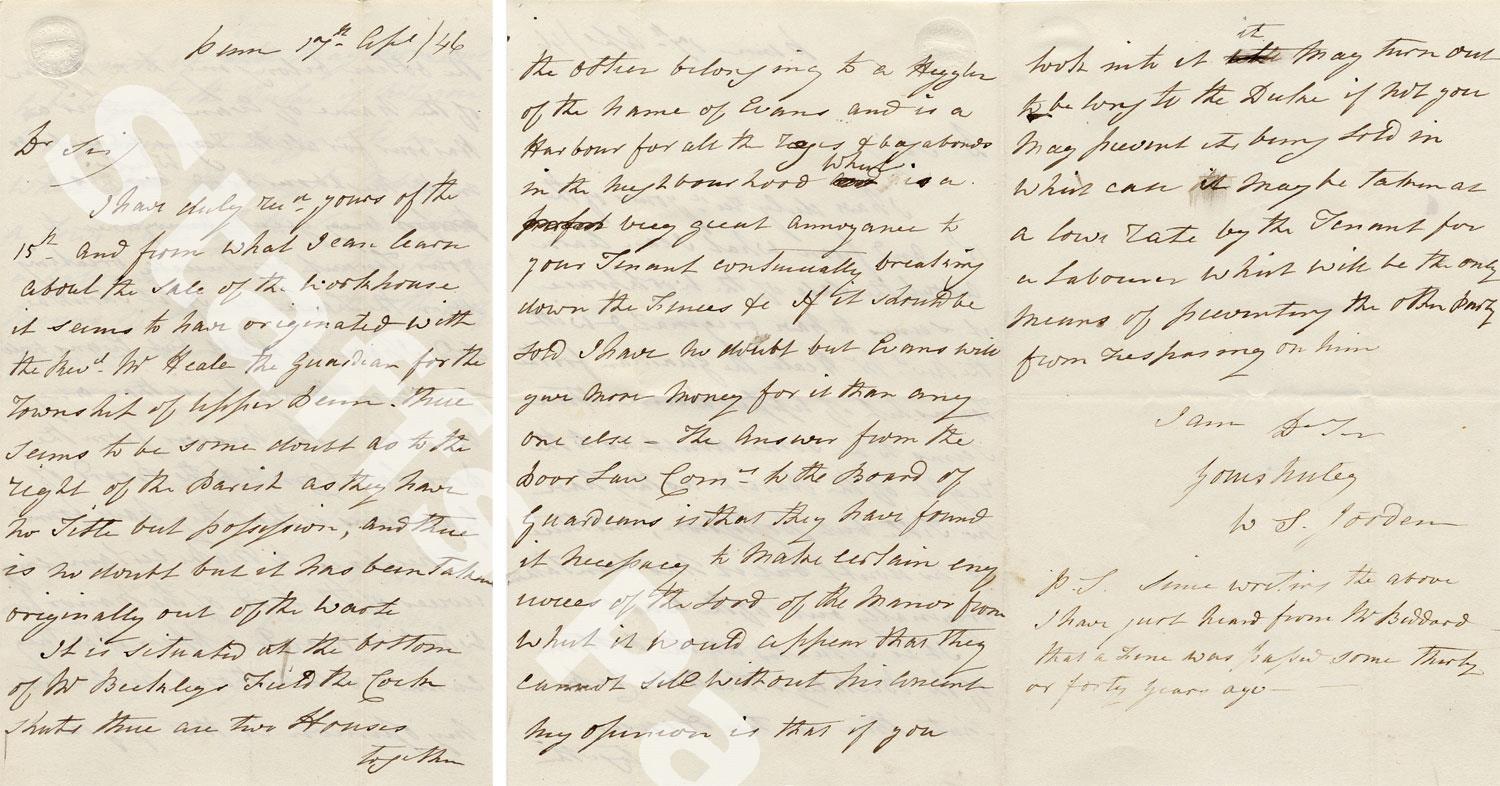 Penn 17th Apl /46
Dr Sir
I have duly recd yours of the
15th and from what I can learn
about the sale of the Workhouse
it seems to have originated with
the Revd Mr Heale the Guardian for the
Township of Upper Penn. there
seems to be some doubt as to the
right of the Parish as they have
no Title but possession, and there
is no doubt but it has been taken
originally out of the Waste
It is situated at the bottom
of Mr Field the Cock
shuts there are two Houses
together
the other belonging to a Higgler
of the name of Evans and is a
Harbour for all the & vagabonds
in the Neighbourhood which is a
very great annoyance to
your Tenant continually breaking
down the Fences &c If it should be
sold I have no doubt but Evans will
give more money for it than any
one else – The Answer from the
Poor Law Comrs to the Board of
Guardians is that they have found
it necessary to make certain enq
uiries of the Lord of the Manor from
which it would appear that they
cannot sell without his consent
My opinion is that if you
look into it it may turn out
to belong to the Duke if not you
may prevent its being sold in
which case it may be taken at
a low rate by the Tenant for
a labourer which will be the only
means of preventing the other party
from trespasing on him
I am Dr Sir
Yours truley
W S. Jorden
P.S. Since writing the above
I have just heard from Mr Biddard
that a Fine was passed some thirty
or forty years ago —
Staffs Pa